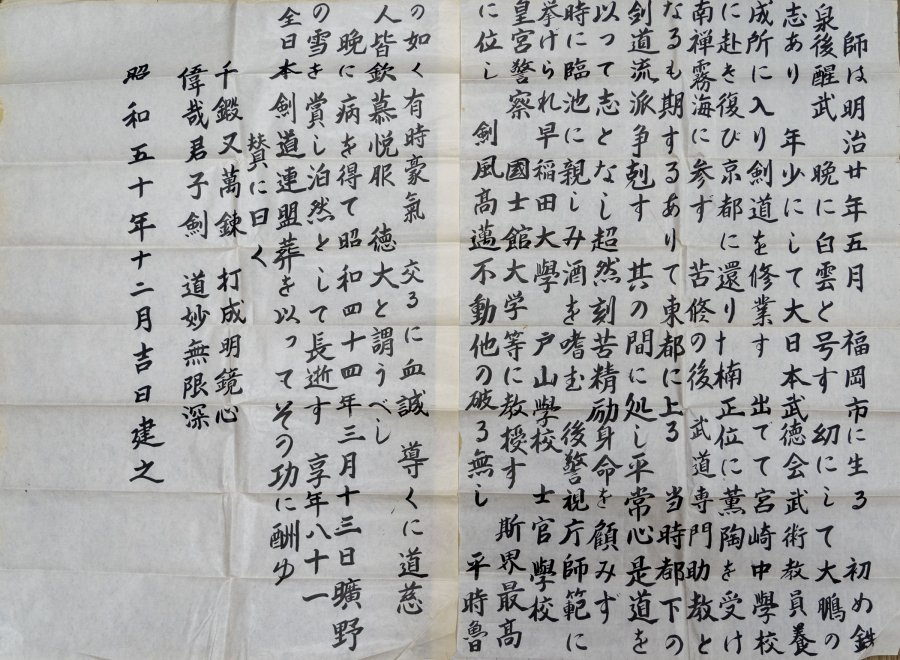 師は明治廿年五月　福岡市に生る　初め鉄
泉後醒武　晩に白雲と号す　幼にして大鵬の
志あり　年少にして大日本武徳会武術教員養
成所に入り剣道を修業す　出でて宮崎中學校
に赴き復び京都に還り十　楠正位に薫陶を受け
南禅霧海に参ず　苦修の後　武道専門助教と
なるも期するありて東都に上る　当時都下の
剣道流派争剋す　共の間に処し平常心是道を
以って志となし超然刻苦精励身命を顧みず
時に臨池に親しみ酒を嗜む　後警視庁師範に
挙げられ早稲田大學　戸山學校　士官學校
皇宮警察　國士館大学等に教授す　斯界最高
に位し　剣風高邁不動他の破る無し　平時魯
の如く有時豪氣　交るに血誠　導くに道慈
人皆欽慕悦服　徳大と謂うべし
晩に病を得て昭和四十四年三月十三日曠野
の雪を賞し泊然として長逝す　享年八十一
全日本剣道連盟葬を以ってその功に酬ゆ
賛に曰く
千鍛又萬錬　打成明鏡心
偉哉君子劍　道妙無限深
昭和五十年十二月吉日建之